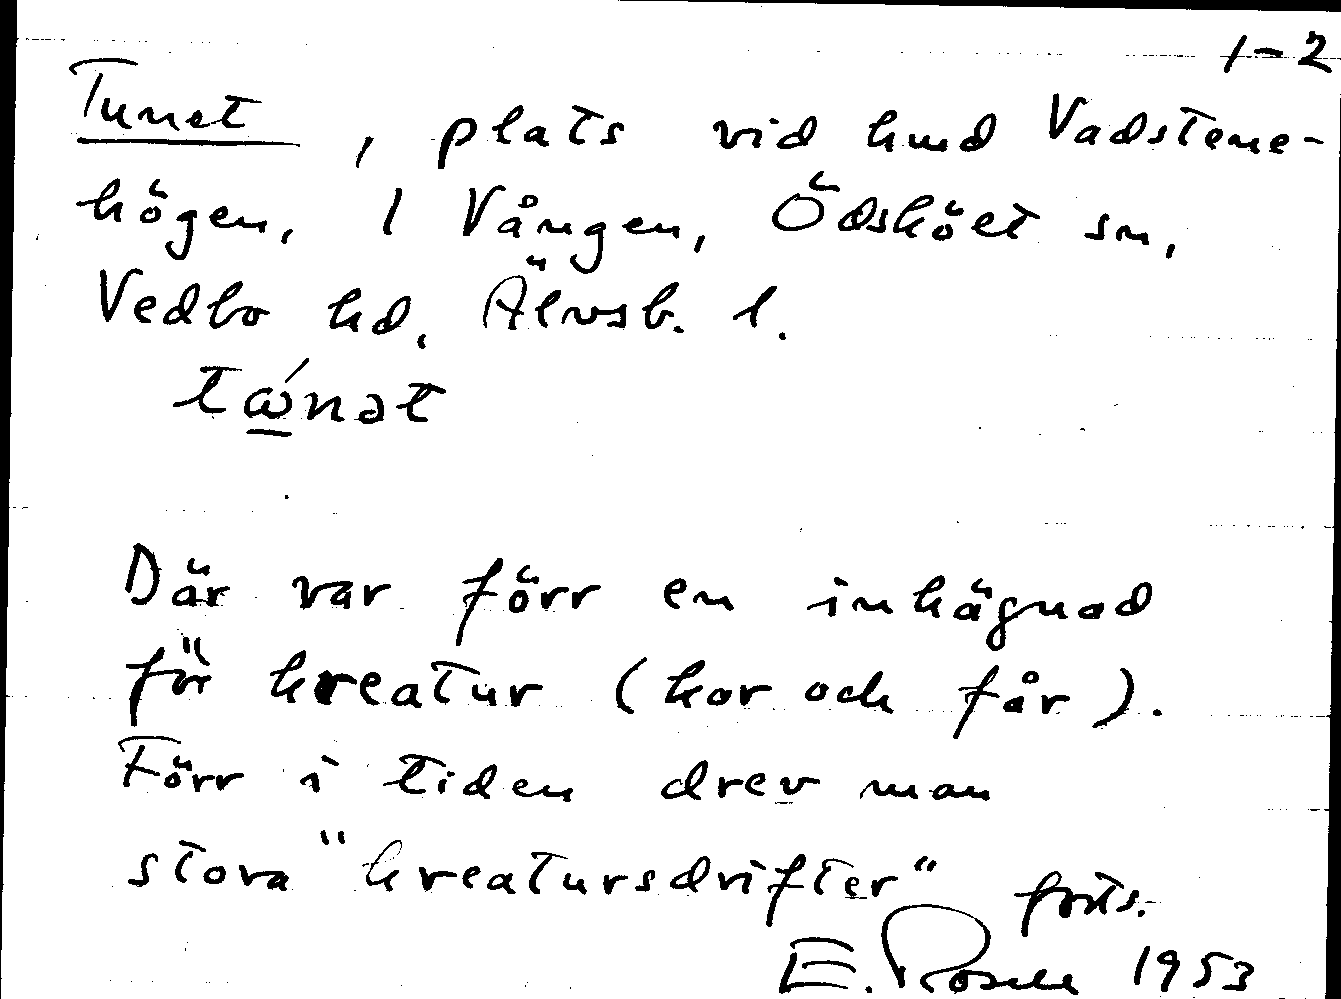 1-2
Tunet, plats vid hmd Vadstene-
högen, 1 Vången, Ödsköet sn,
Vedbo hd, Älvsb. l.
tώnət
Där var förr en inhägnad
för kreatur (kor och får).
Förr i tiden drev man
stora "kreatursdrifter" forts.
E. Rosell 1953